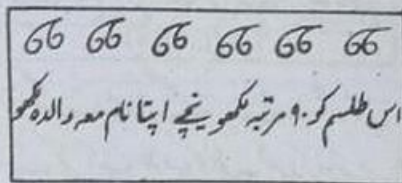 66 66 66 66 66 66
اس طلسم کو ۹۰ مرتبہ لکھو نیچے اپنا نام معہ والدہ لکھو